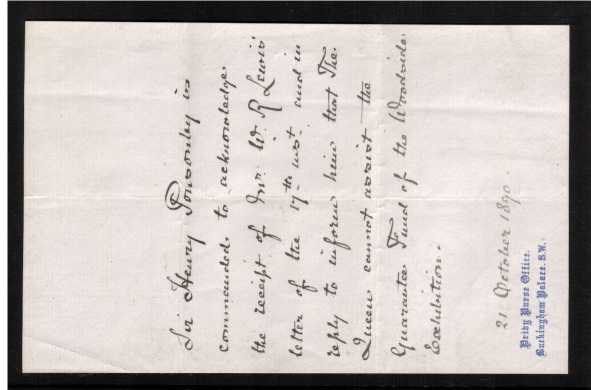 Sir Henry Ponsonby is
commanded to acknowledge
the receipt of Mr. W. R Lewis'
letter of the 17th inst. and in
reply to inform him that The
Queen cannot assist the
Guarantee Fund of the Woodside
Exhibition.
21 October 1890.
Privy Purse Office.
Buckingham Palace. S.W.